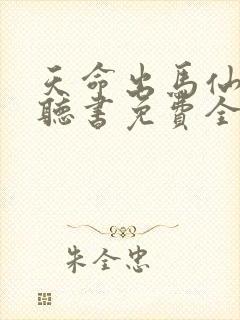 天命出馬仙
聽書免費全
朱全忠